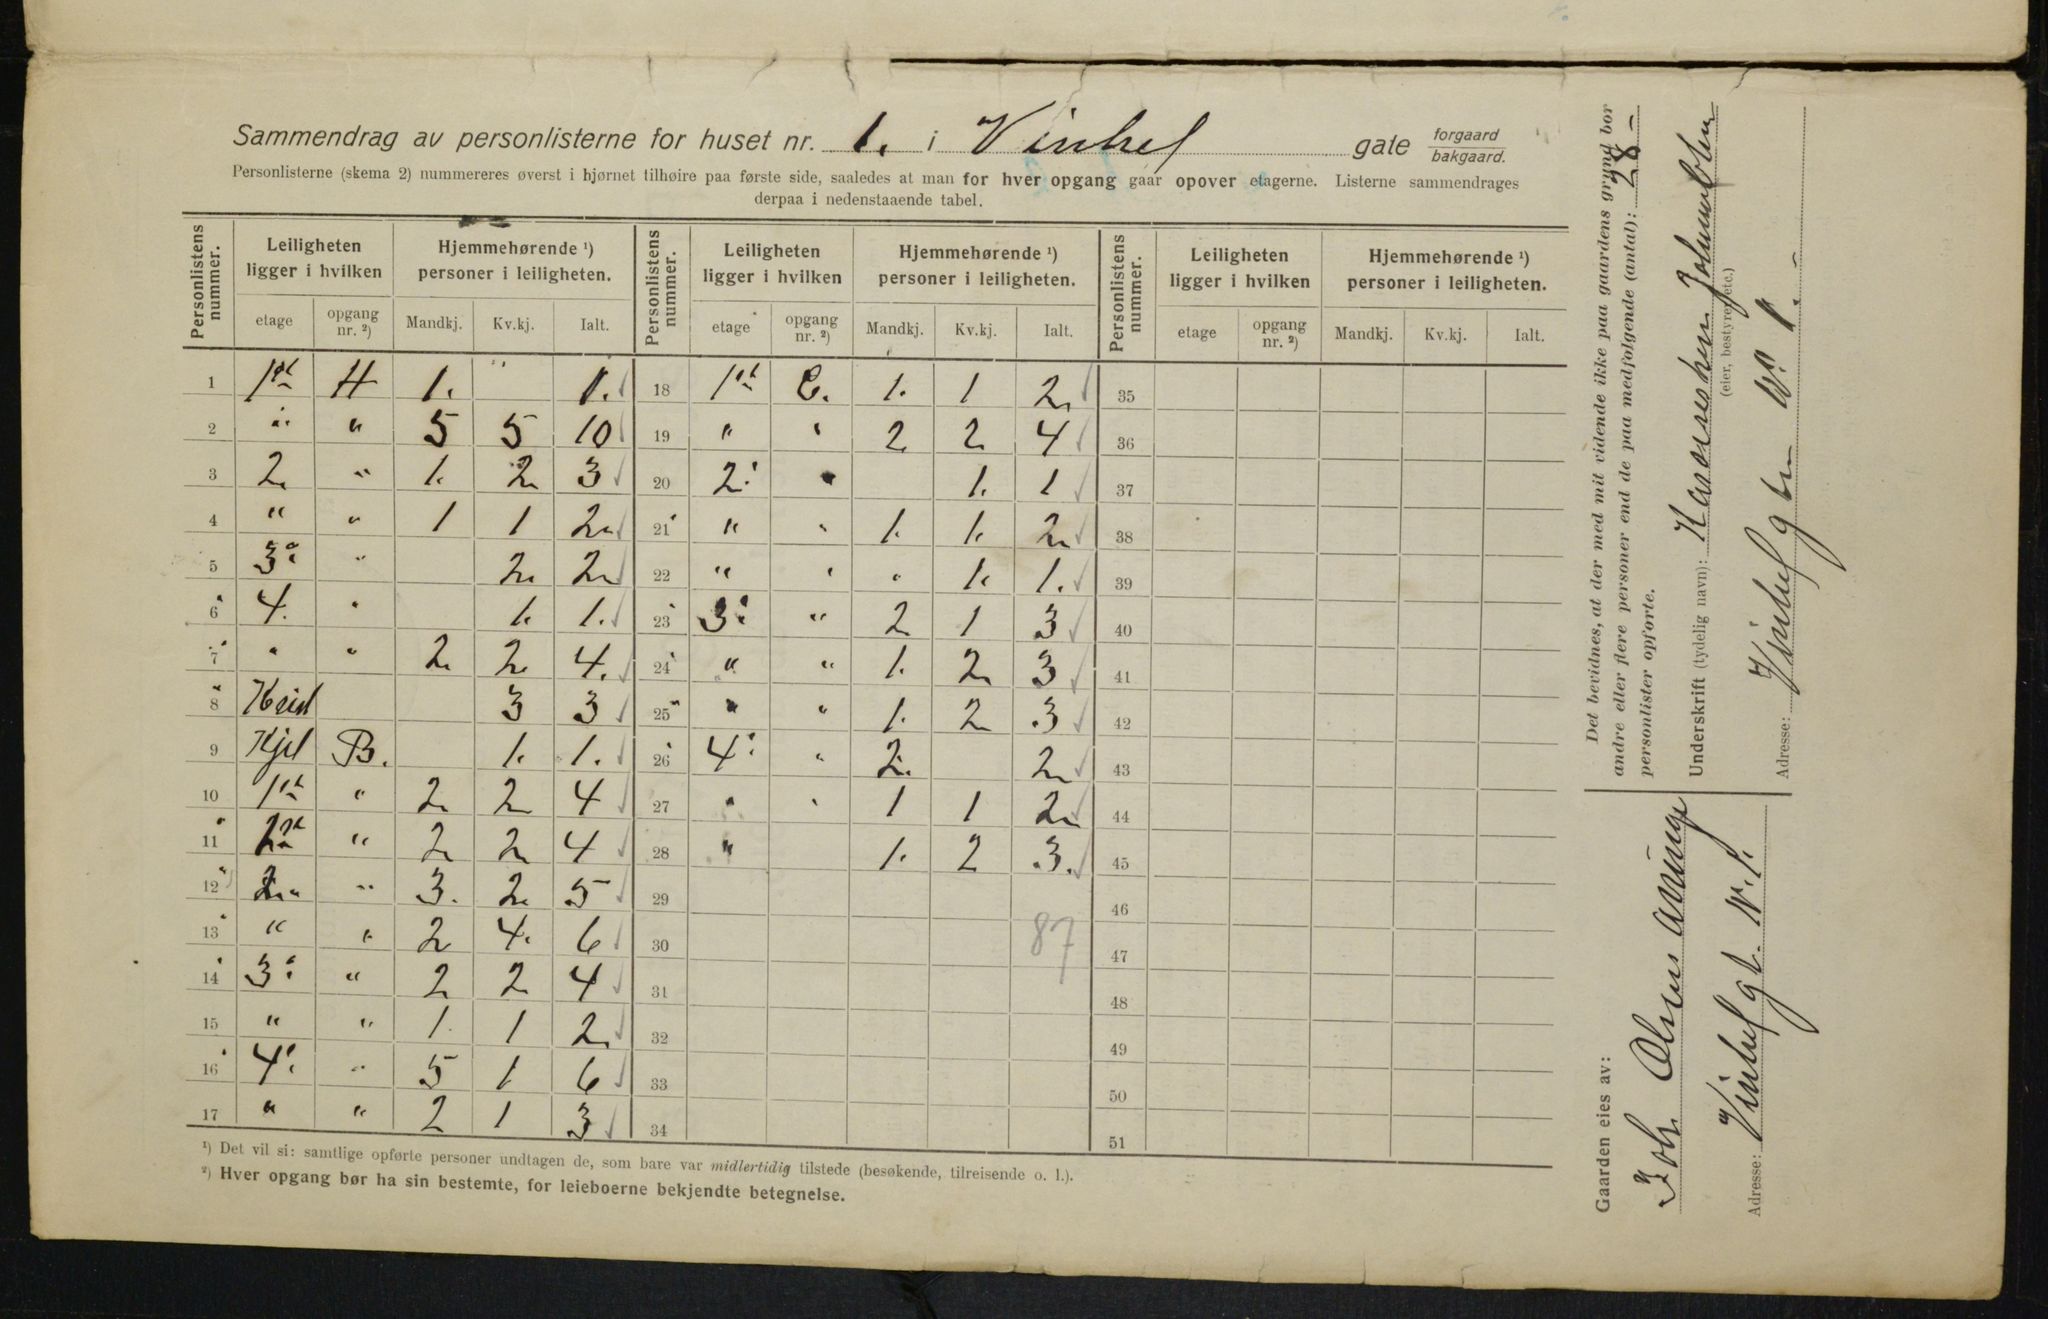 Sammendrag av personlisterne for huset nr. 1. i Vinkel gate forgaard / bakgaard.
Personlisterne (skema 2) nummereres øverst i hjørnet tilhøire paa første side, saaledes at man for hver opgang gaar opover etagerne. Listerne sammendrages
derpaa i nedenstaaende tabel.
Personlistens nummer. Leiligheten ligger i hvilken Hjemmehørende ¹) personer i leiligheten. Personlistens nummer. Leiligheten ligger i hvilken Hjemmehørende ¹) personer i leiligheten. Personlistens nummer. Leiligheten ligger i hvilken Hjemmehørende ¹) personer i leiligheten.
etage opgang nr. ²) Mandkj. Kv.kj. Ialt. etage opgang nr. ²) Mandkj. Kv.kj. Ialt. etage opgang nr. ²) Mandkj. Kv.kj. Ialt.
1 1st H 1. " 1. 18 1st C. 1. 1 2 35
2 " " 5 5 10 19 " " 2 2 4 36
3 2. " 1. 2 3 20 2. " 1. 1 37
4 " " 1 1 2 21 " " 1. 1. 2 38
5 3. " 2 2 22 " " " 1. 1. 39
6 4. " 1. 1. 23 3. " 2 1 3 40
7 " " 2 2 4. 24 " " 1. 2 3 41
8 3 3 25 " " 1. 2 3 42
9 Kjel B. 1. 1. 26 4. " 2. 2 43
10 1st " 2 2 4 27 " " 1 1 2 44
11 " 2 2 4 28 " 1. 2 3. 45
12 2. " 3. 2. 5 29 46
13 " " 2 4. 6 30 87 47
14 3. " 2 2 4 31 48
15 " " 1. 1 2 32 49
16 4. " 5 1 6 33 50
17 " " 2 1 3 34 51
¹) Det vil si: samtlige opførte personer undtagen de, som bare var midlertidig tilstede (besøkende, tilreisende o. l.).
²) Hver opgang bør ha sin bestemte, for leieboerne bekjendte betegnelse.
Det bevidnes, at der med mit vidende ikke paa gaardens grund bor
andre eller flere personer end de paa medfølgende (antal): 28 -
personlister opførte.
Underskrift (tydelig navn):
(eier, bestyrer etc.)
Adresse: Vinkelgten No 1. -
Gaarden eies av:
Joh. Olsens arvinge
Adresse: Vinkelgt. N. 1.